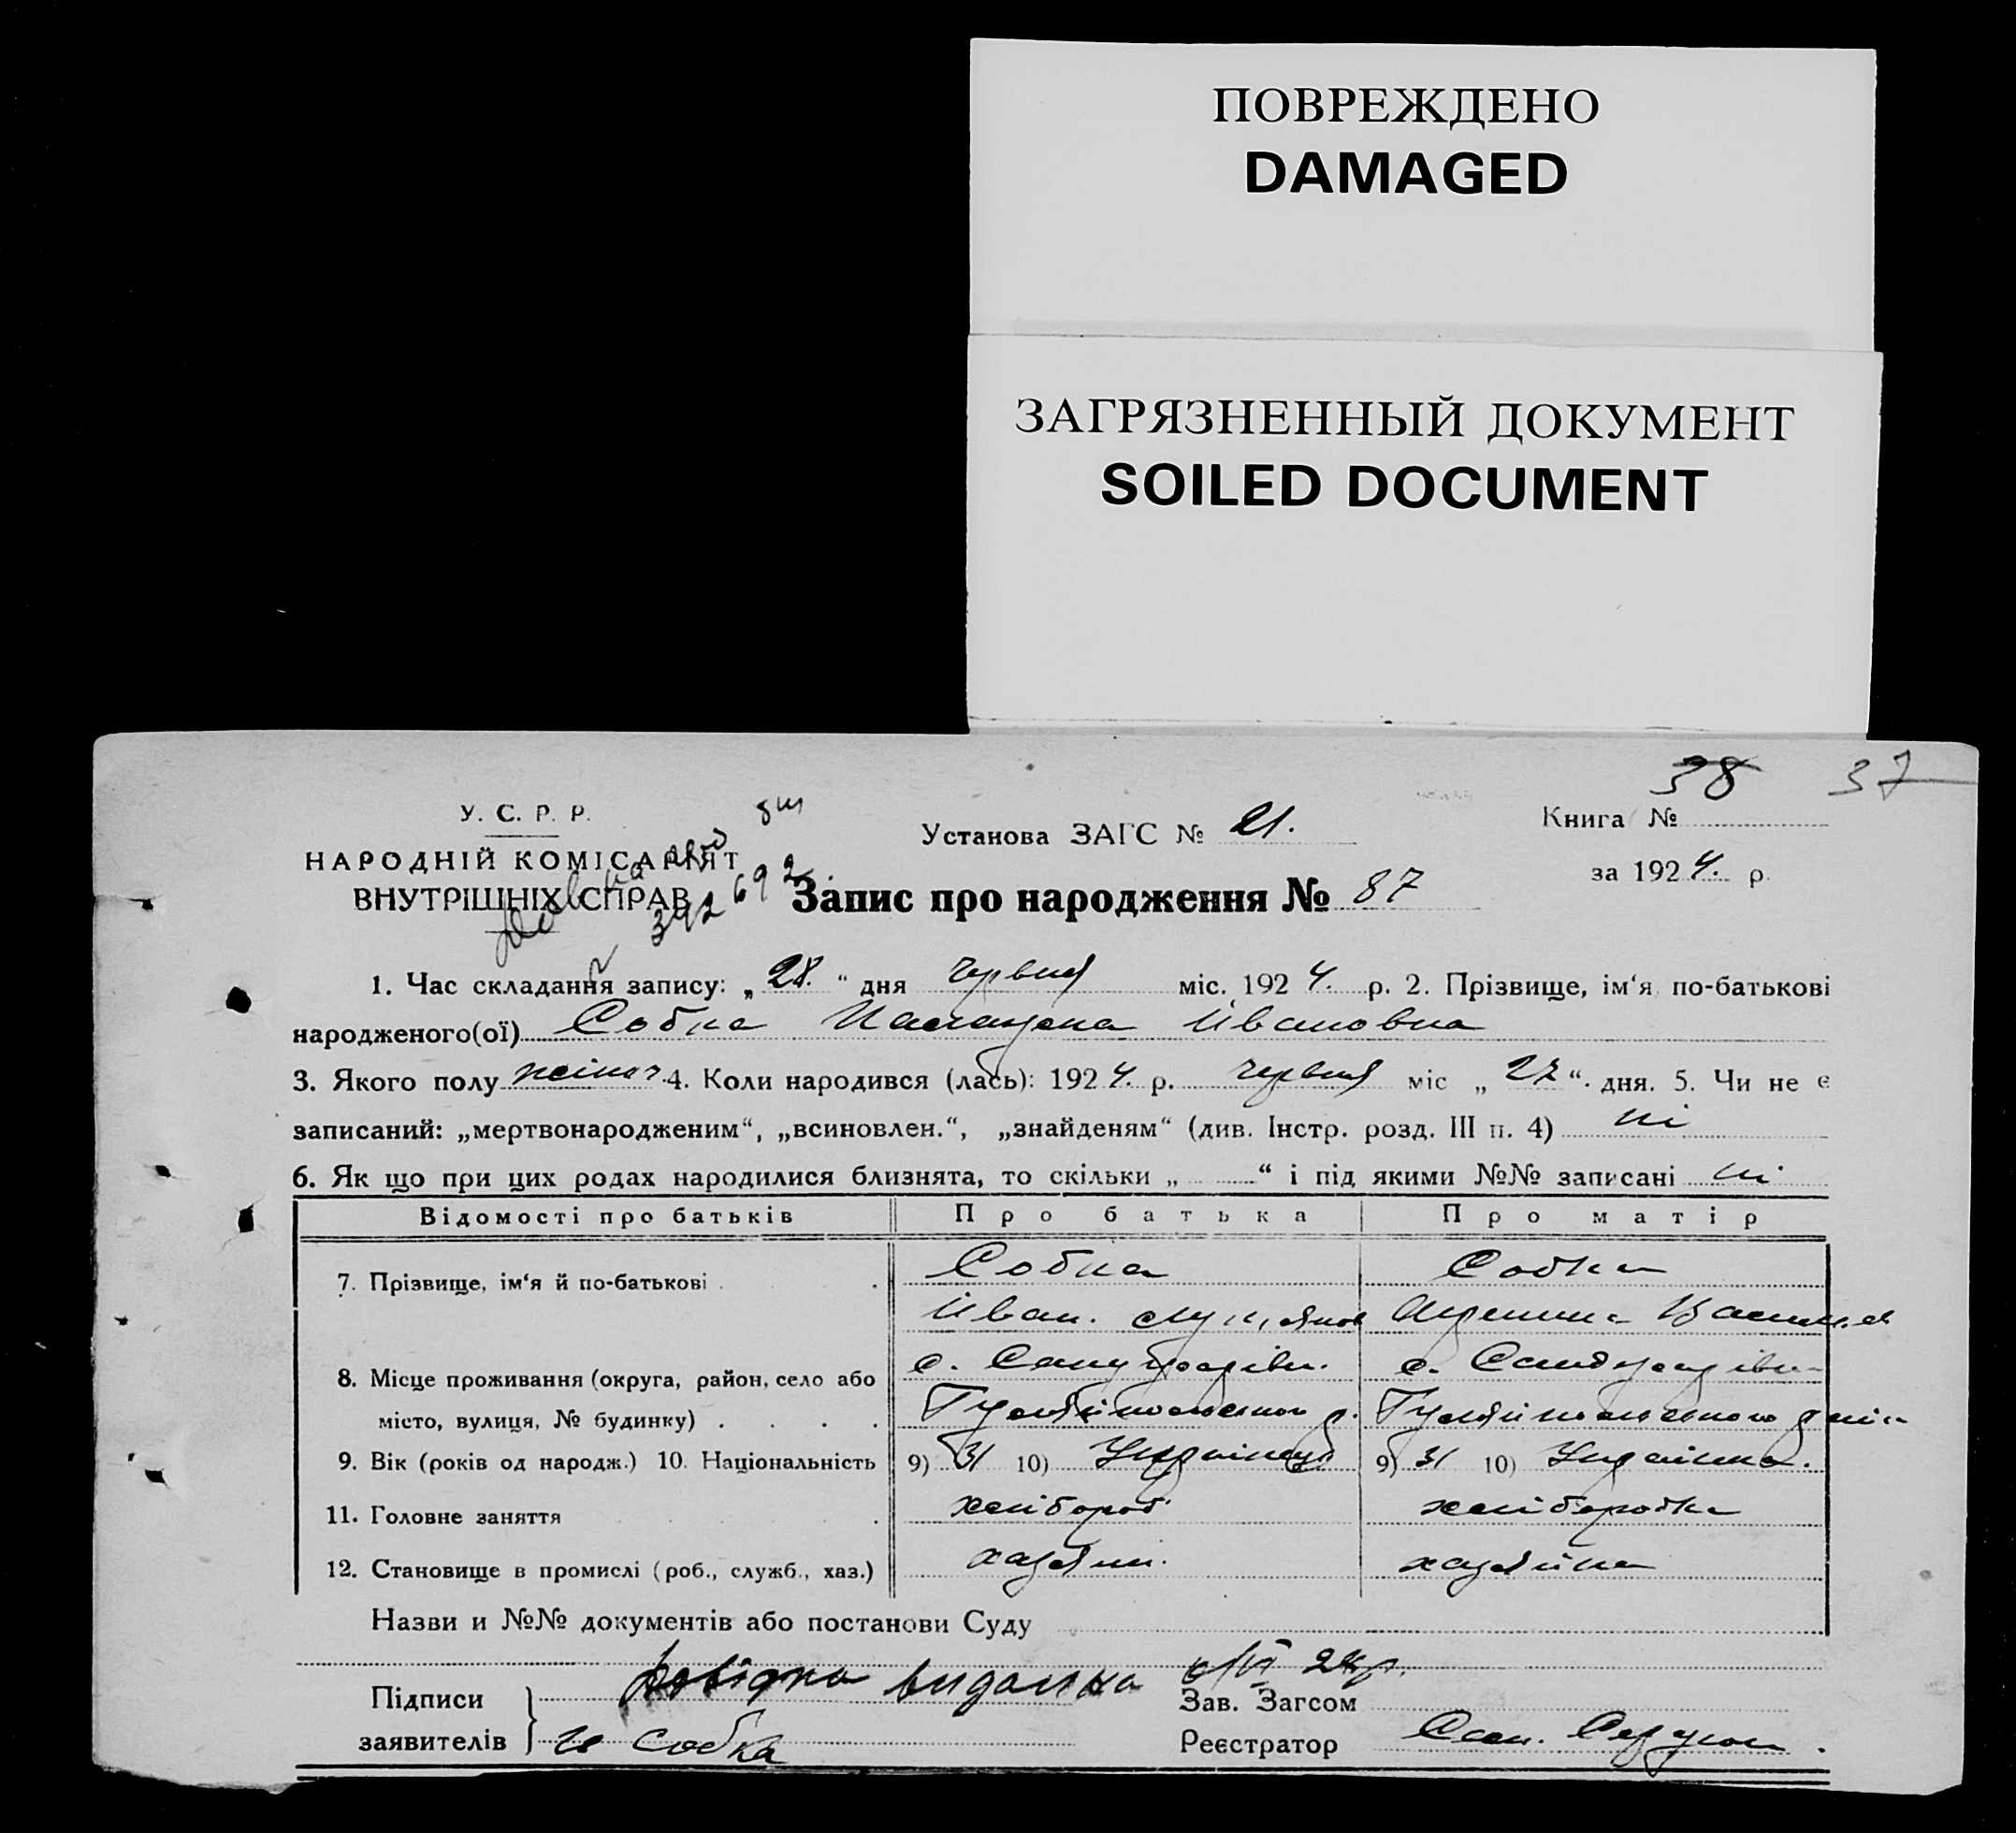 ПОВРЕЖДЕНО
DAMAGED
ЗАГРЯЗНЕННЫЙ ДОКУМЕНТ
SOILED DOCUMENT
38 37
У. С. Р. Р.
Установа ЗАГС № 21.
Книга №
НАРОДНІЙ КОМІСАРІЯТ
за 1924. р.
ВНУТРІШНІХ СПРАВ
Запис про народження № 87
1. Час складання запису: „28.“ дня червня міс. 1924. р. 2. Прізвище, ім‘я по-батькові
народженого(ої) Собка Ивановна
3. Якого полу жіноч. 4. Коли народився (лась): 1924. р. червня міс „27“. дня. 5. Чи не є
записаний: „мертвонародженим“, „всиновлен.“, „знайденям“ (див. Інстр. розд. III п. 4) ні
6. Як що при цих родах народилися близнята, то скільки „ “ і під якими №№ записані ні
Відомості про батьків Про батька Про матір
7. Прізвище, ім‘я й по-батькові Собка Собка
Иван.
8. Місце проживання (округа, район, село або с. с.
місто, вулиця, № будинку)
9. Вік (років од народж.) 10. Національність 9) 31 10) Українець 9) 31 10) Українка.
11. Головне заняття хлібороб хліборобка
12. Становище в промислі (роб., служб., хаз.) хазяїн. хазяйка
Назви и №№ документів або постанови Суду
Довідка видана
Підписи
Зав. Загсом
заявителів И Собка
Реєстратор